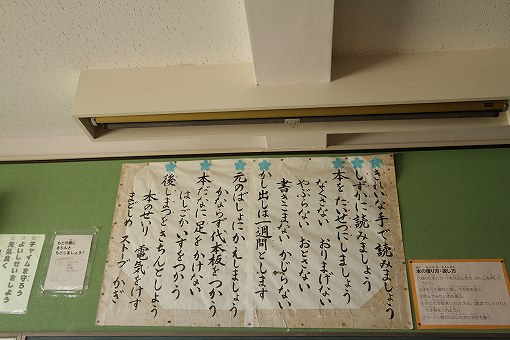 きれいな手で読みましょう
しずかに読みましょう
本をたいせつにしましょう
なくさない おりまげない
やぶらない おとさない
書きこまない かじらない
かし出しは一週間とします
元のばしょにかえしましょう
かならず代本板をつかう
本だなに足をかけない
はしごかいすをつかう
後しまつをきちんとしよう
本のせいり 電気をけす
まどじめ ストーブ かぎ
もとの順に
きちんと
もどしましょう!
☆チャイムを守ろう
☆よいしせいをしよう
☆元気良く
本の借り方・返し方